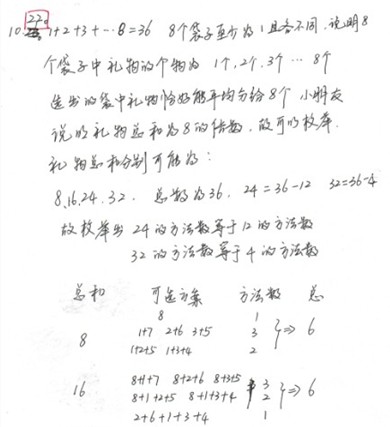 10. 22。 1+2+3+…8=36 8个袋子至少为1且各不同,说明8
个袋子中礼物的个物为 1个,2个,3个…8个
选出的袋中礼物恰好能平均分给8个小朋友
说明礼物总和为8的倍数,故可以枚举.
礼物总和分别可能为:
8,16,24,32. 总数为36, 24=36-12 32=36-4
故枚举出 24的方法数等于12的方法数
32的方法数等于4的方法数
总和 可选方案 方法数 总
8 1
8 1+7 2+6 3+5 3 ⇒ 6
1+2+5 1+3+4 2
8+1+7 8+2+6 8+3+5 3
16 8+1+2+5 8+1+3+4 2 ⇒ 6
2+6+1+3+4 1